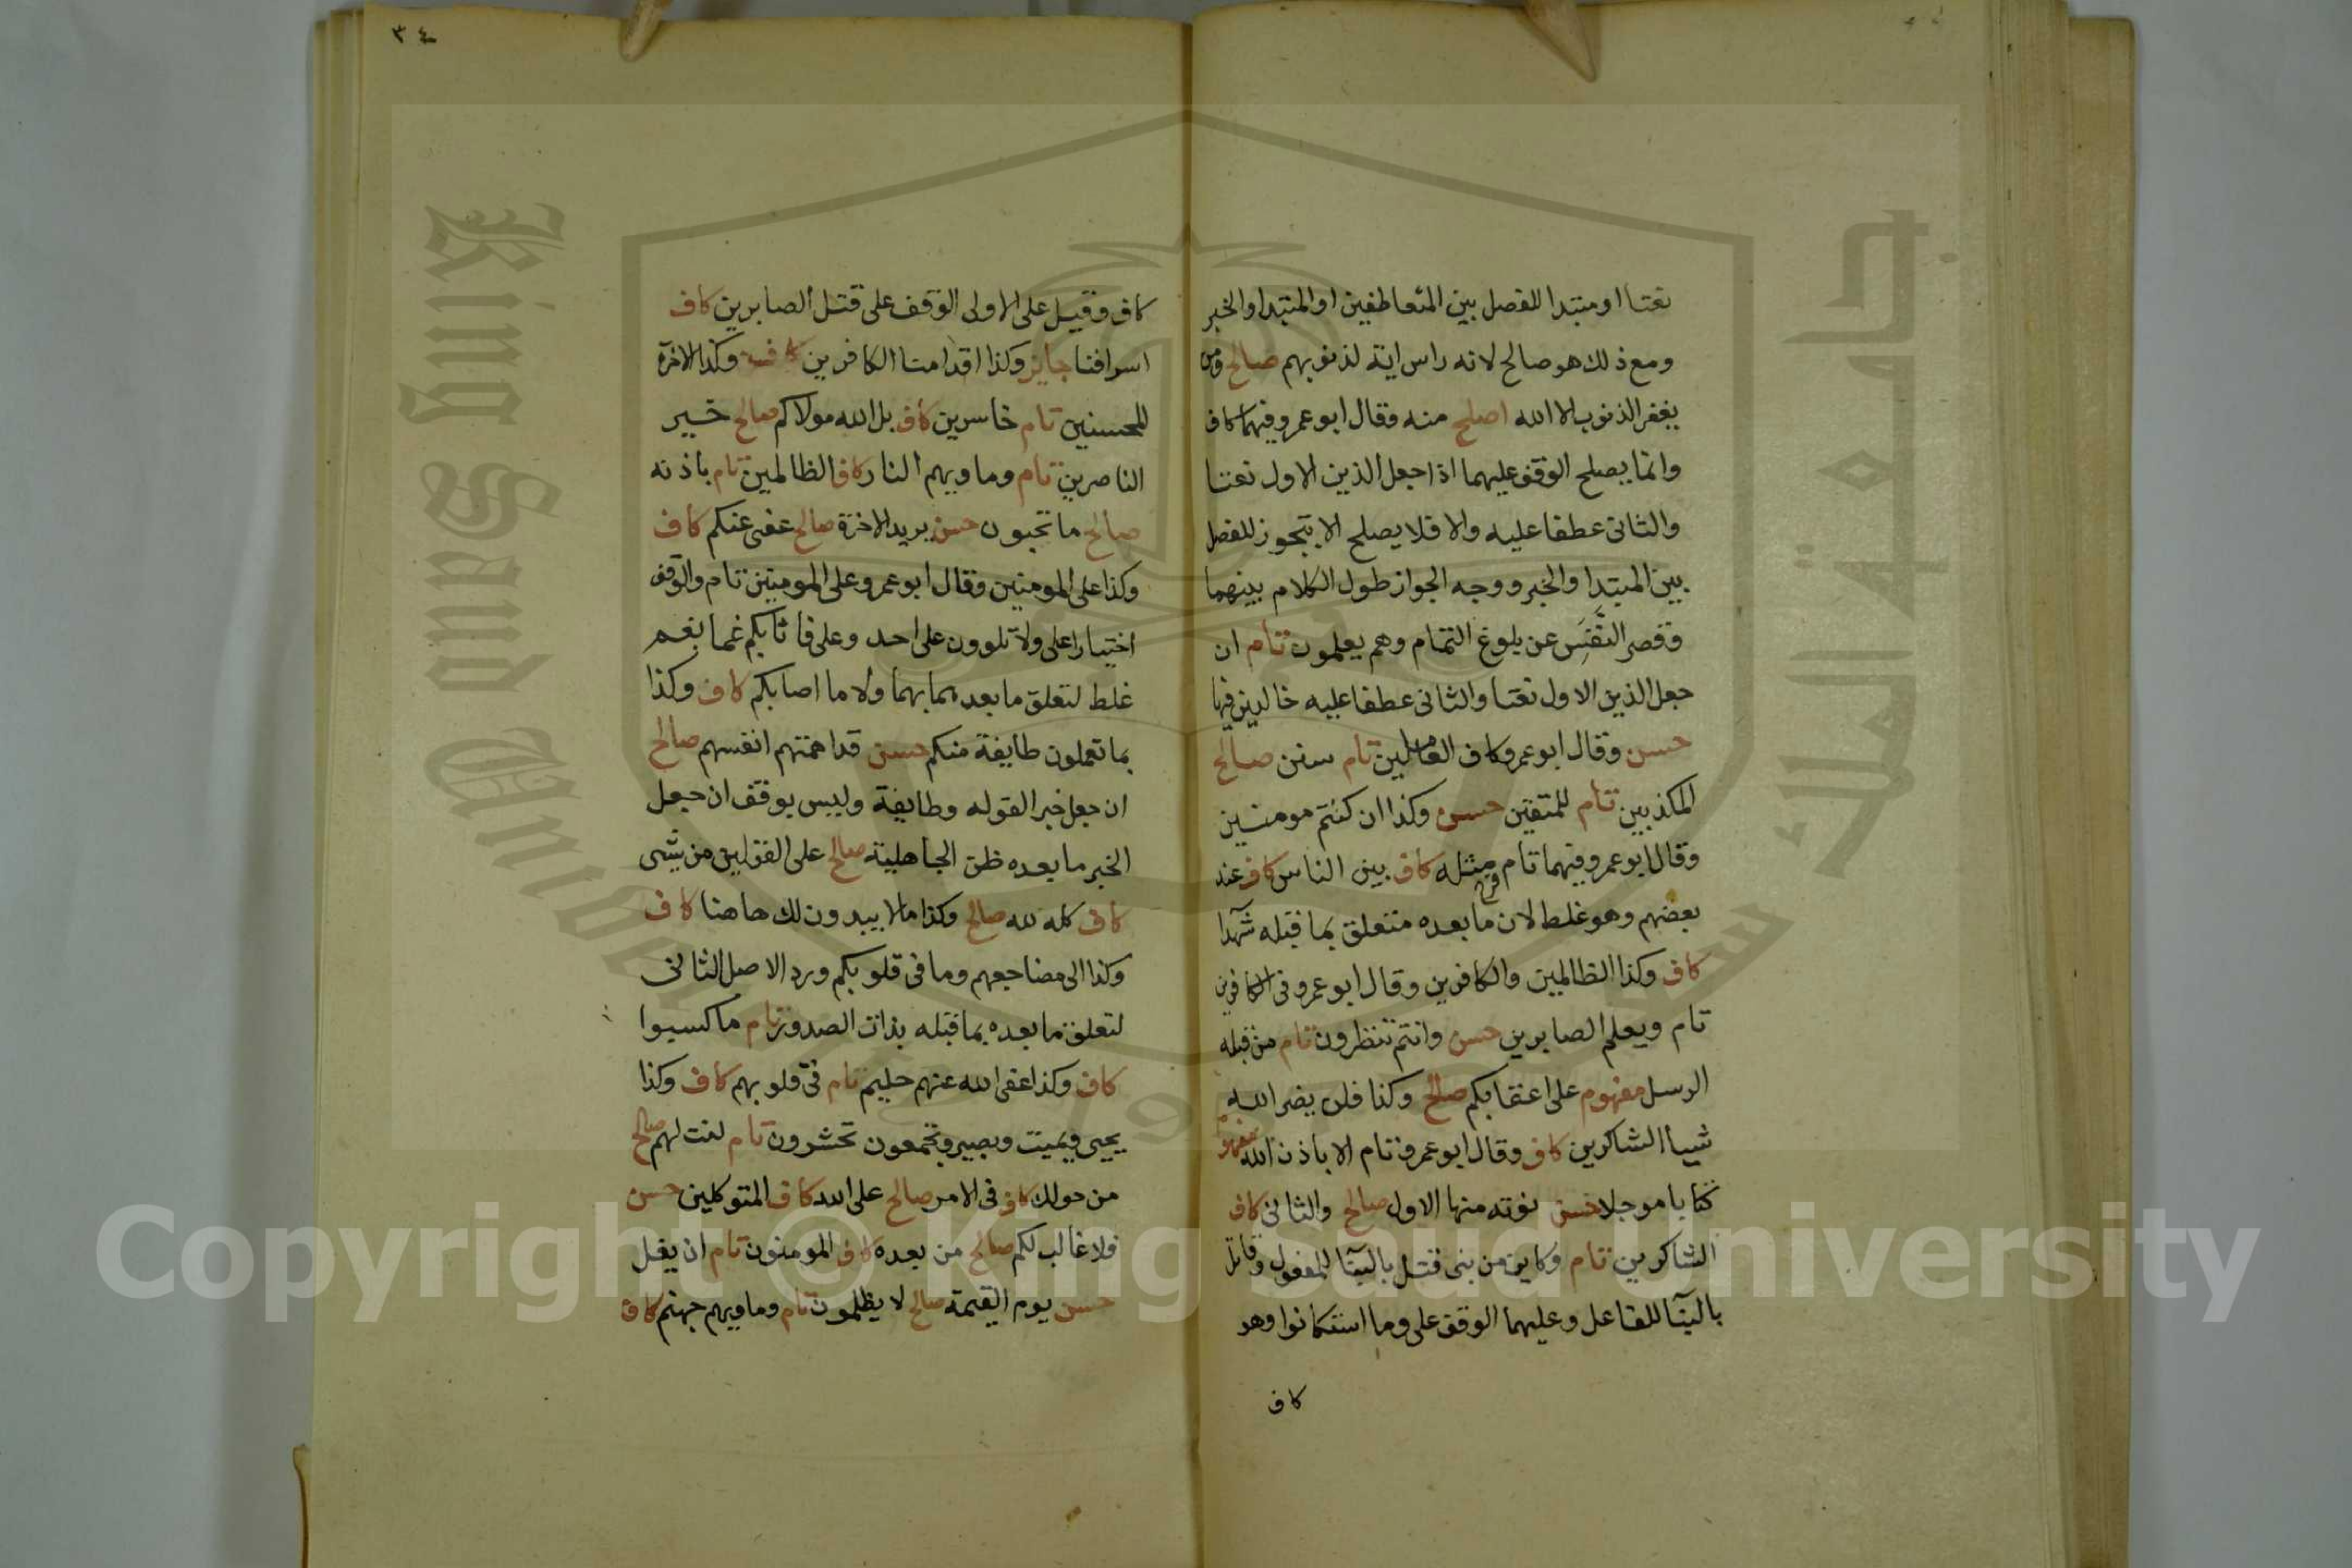 نعتا او مبتدا للفصل بين المتعاطفين او المبتدا والخبر
ومع ذلك هو صالح لانه راس اية لذنوبهم صالح ومن
يغفر الذنوب الا الله اصلح منه وقال ابو عمرو فيهما كاف
وانما يصلح الوقف عليهما اذا جعل الذين الاول نعتا
والثانى عطفا عليه والا فلا يصلح الا بتجوز للفصل
بين المبتدا والخبر ووجه الجواز طول الكلام بينهما
وقصر النَّفَس عن بلوغ التمام وهم يعلمون تام ان
جعل الذين الاول نعتا والثانى عطفا عليه خالدين فيها
حسن وقال ابو عمرو كاف العاملين تام سنن صالح
المكذبين تام للمتقين حسن وكذا ان كنتم مومنين
وقال ابو عمرو فيهما تام قرح مثله كاف بين الناس كاف عند
بعضهم وهو غلط لان ما بعده متعلق بما قبله شهدا
كاف وكذا الظالمين والكافرين وقال ابو عمرو فى الكافرين
تام ويعلم الصابرين حسن وانتم تنظرون تام من قبله
الرسل مفهوم على اعقابكم صالح وكذا فلن يضر الله
شيأ الشاكرين كاف وقال ابو عمرو تام الا باذن الله مفهوم
كتابا موجلا حسن نوته منها الاول صالح والثانى كاف
الشاكرين تام وكاين من نبى قتل بالبنا للمفعول وقاتل
بالبنآ للفاعل وعليهما الوقف على وما استكانوا وهو
كاف
٣٤
كاف وقيل على الاولى الوقف على قتل الصابرين كاف
اسرافنا جايز وكذا اقدامنا الكافرين كاف وكذا الاخرة
للمحسنين تام خاسرين كاف بل الله مولاكم صالح خير
الناصرين تام وماويهم النار كاف الظالمين تام باذنه
صالح ما تحبون حسن يريد الاخرة صالح عفى عنكم كاف
وكذا على المومنين وقال ابو عمرو على المومنين تام والوقف
اختيارا على ولا تلوون على احد وعلى فاثابكم غما بغم
غلط لتعلق ما بعدهما بهما ولا ما اصابكم كاف وكذا
بما تعملون طايفة منكم حسن قد اهمتهم انفسهم صالح
ان جعل خبرا لقوله وطايفة وليس بوقف ان جعل
الخبر ما بعده ظن الجاهلية صالح على القولين من شى
كاف كله لله صالح وكذا ما لا يبدون لك هاهنا كاف
وكذا الى مضاجعهم وما فى قلوبكم ورد الاصل الثانى
لتعلق ما بعده بما قبله بذات الصدور تام ما كسبوا
كاف وكذا عفى الله عنهم حليم تام فى قلوبهم كاف وكذا
يحيى ويميت وبصير وتجمعون تحشرون تام لنت لهم صالح
من حولك كاف فى الامر صالح على الله كاف المتوكلين حسن
فلا غالب لكم صالح من بعده كاف المومنون تام ان يغل
حسن يوم القيمة صالح لا يظلمون تام وماويهم جهنم كاف
جامعة الملك سعود
King Saud University
Copyright © King Saud University